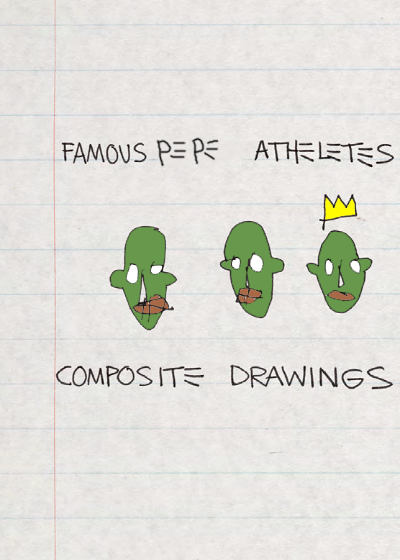 FAMOUS PEPE ATHELETES
COMPOSITE DRAWINGS